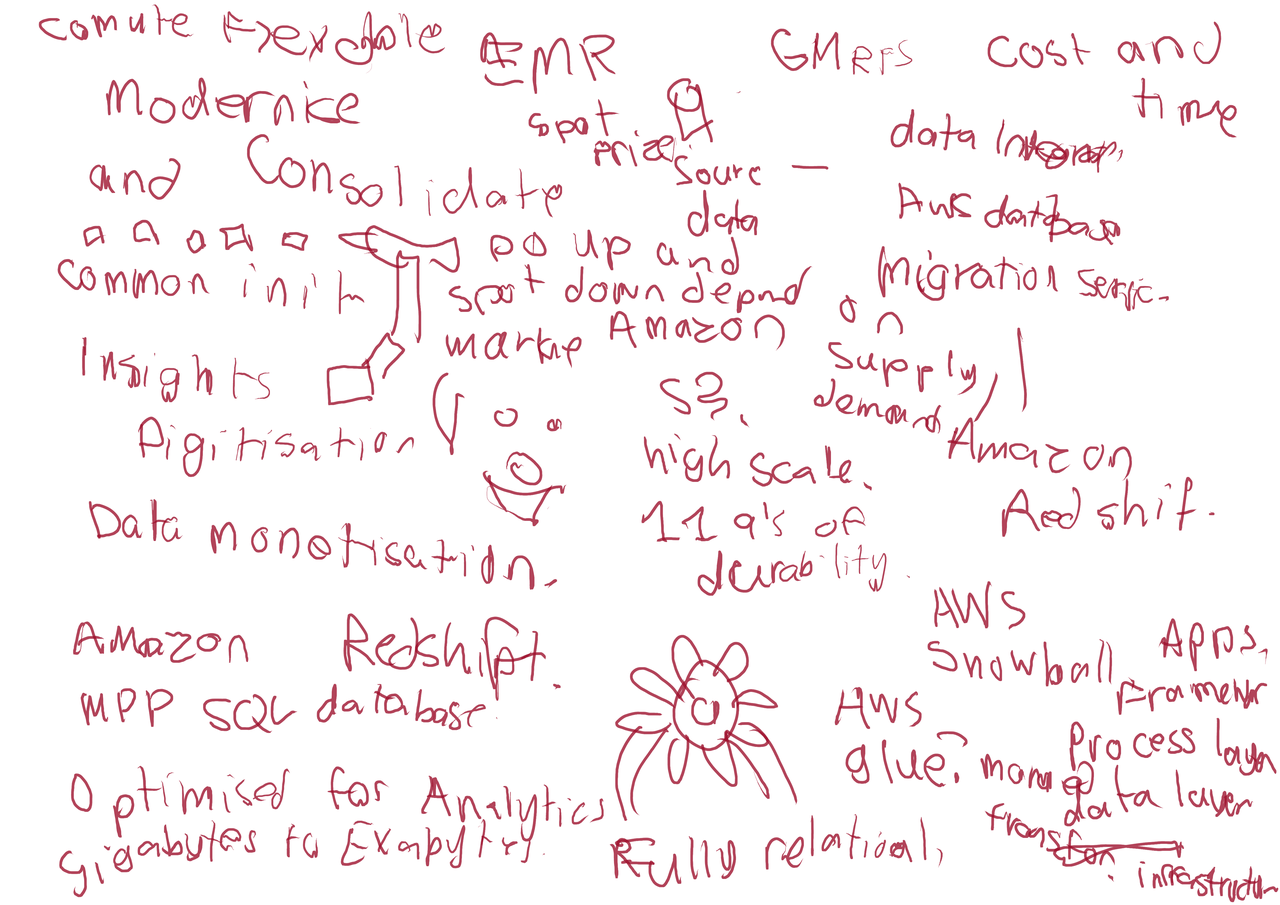 comute
EMR
GMRFS
cost and
time
Modernice
spot
prize
data
and Consolidate
Sourc
data
AWS database
Migration servic.
po up and
common init
spot down depend on
marke Amazon
supply,
demand
Insights
S3.
Digitisation
high scale.
Amazon
Redshif.
11 9's of
durability.
Data monotisation.
AWS
Snowball
Apps,
Framewr
Amazon Redshift.
MPP SQL database.
AWS
glue.
Process layer
data layer
Optimised for Analytics
gigabytes to
Fully relational,
infrastructur